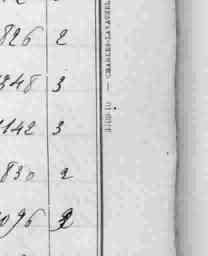 826 2
348 3
142 3
830 2
096 2
CHARLES-LAVAUZEL